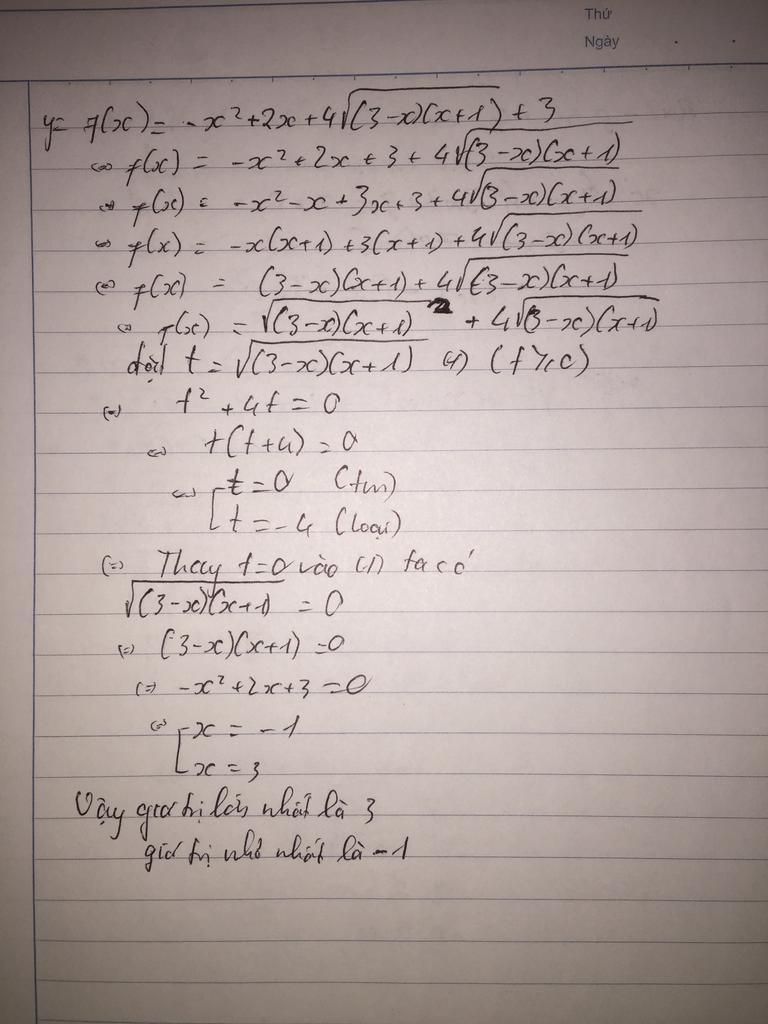 Thứ
Ngày
y= f(x) = -x² + 2x + 4√(3-x)(x+1) + 3
⇔ f(x) = -x² + 2x + 3 + 4√(3-x)(x+1)
⇔ f(x) = -x² - x + 3x + 3 + 4√(3-x)(x+1)
⇔ f(x) = -x(x+1) + 3(x+1) + 4√(3-x)(x+1)
⇔ f(x) = (3-x)(x+1) + 4√(3-x)(x+1)
⇔ f(x) = √(3-x)(x+1)² + 4√(3-x)(x+1)
đặt t = √(3-x)(x+1) (1) (t ≥ 0)
⇔ t² + 4t = 0
⇔ t(t+4) = 0
⇔ [ t = 0 (tm)
t = -4 (loại)
⇔ Thay t=0 vào (1) ta có
√(3-x)(x+1) = 0
⇔ (3-x)(x+1) = 0
⇔ -x² + 2x + 3 = 0
⇔ [ x = -1
x = 3
Vậy giá trị lớn nhất là 3
giá trị nhỏ nhất là -1